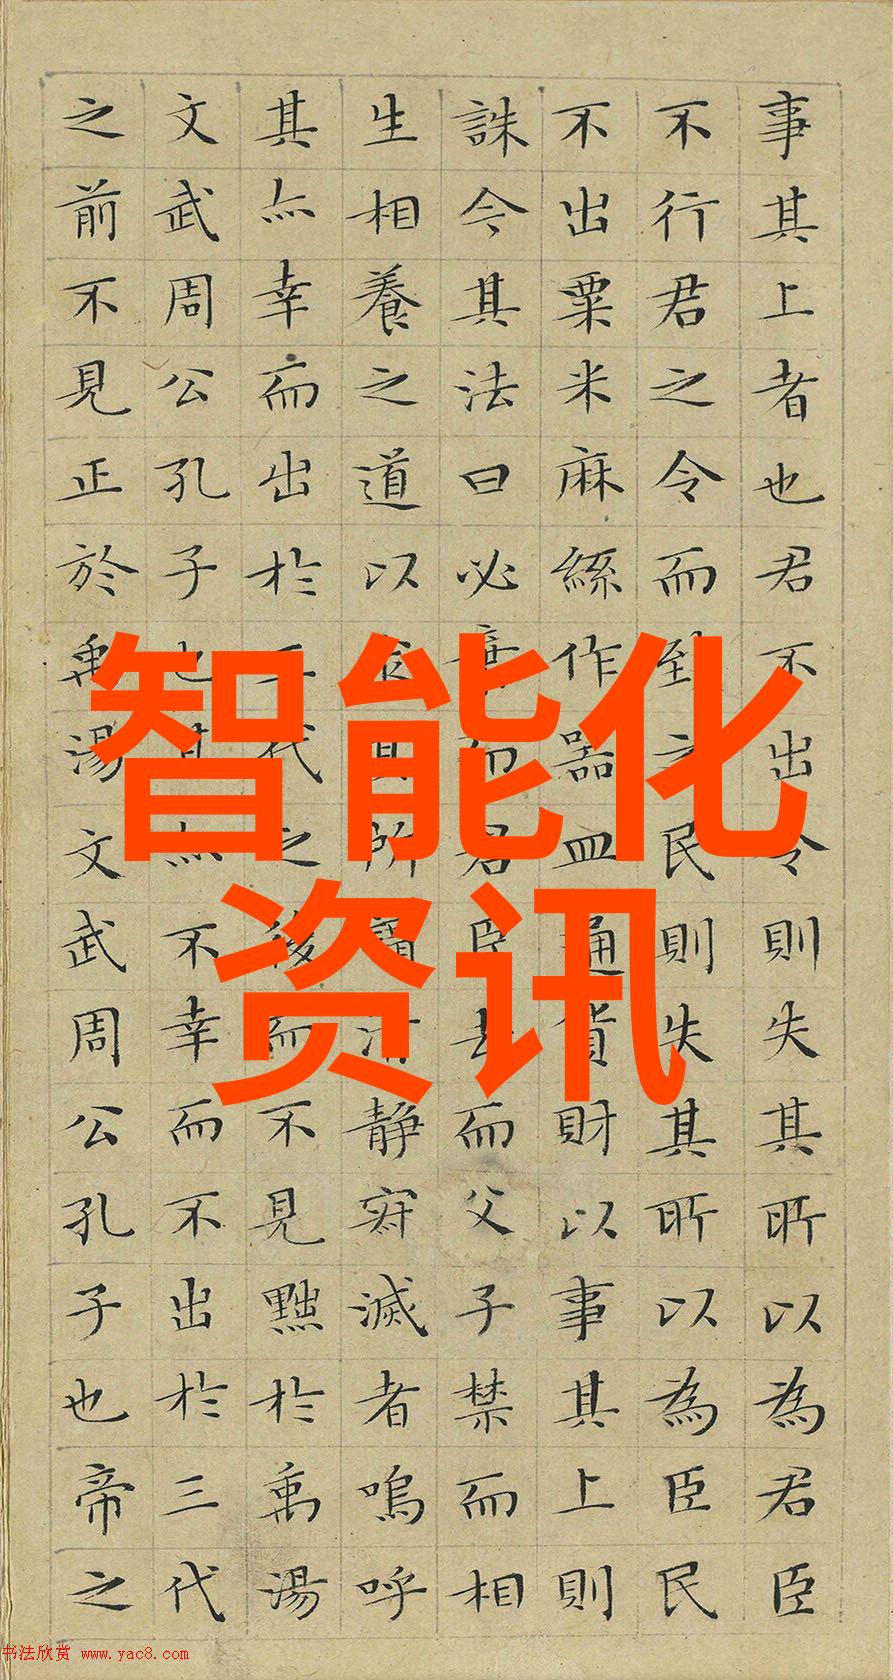 事其上者也君不出令則失其所以為君臣
不行君之令而致之民則失其所以為臣民
不出粟米麻絲作器皿通貨財以事其上則
誅今其法曰必棄而君臣去而父子禁而相
生相養之道以求其所謂清静寂滅者嗚呼
其亦幸而出於三代之後而不見黜於禹湯
文武周公孔子也其亦不幸而不出於三代
之前不見正於禹湯文武周公孔子也帝之
智能化
资讯
书法欣赏 www.yac8.com